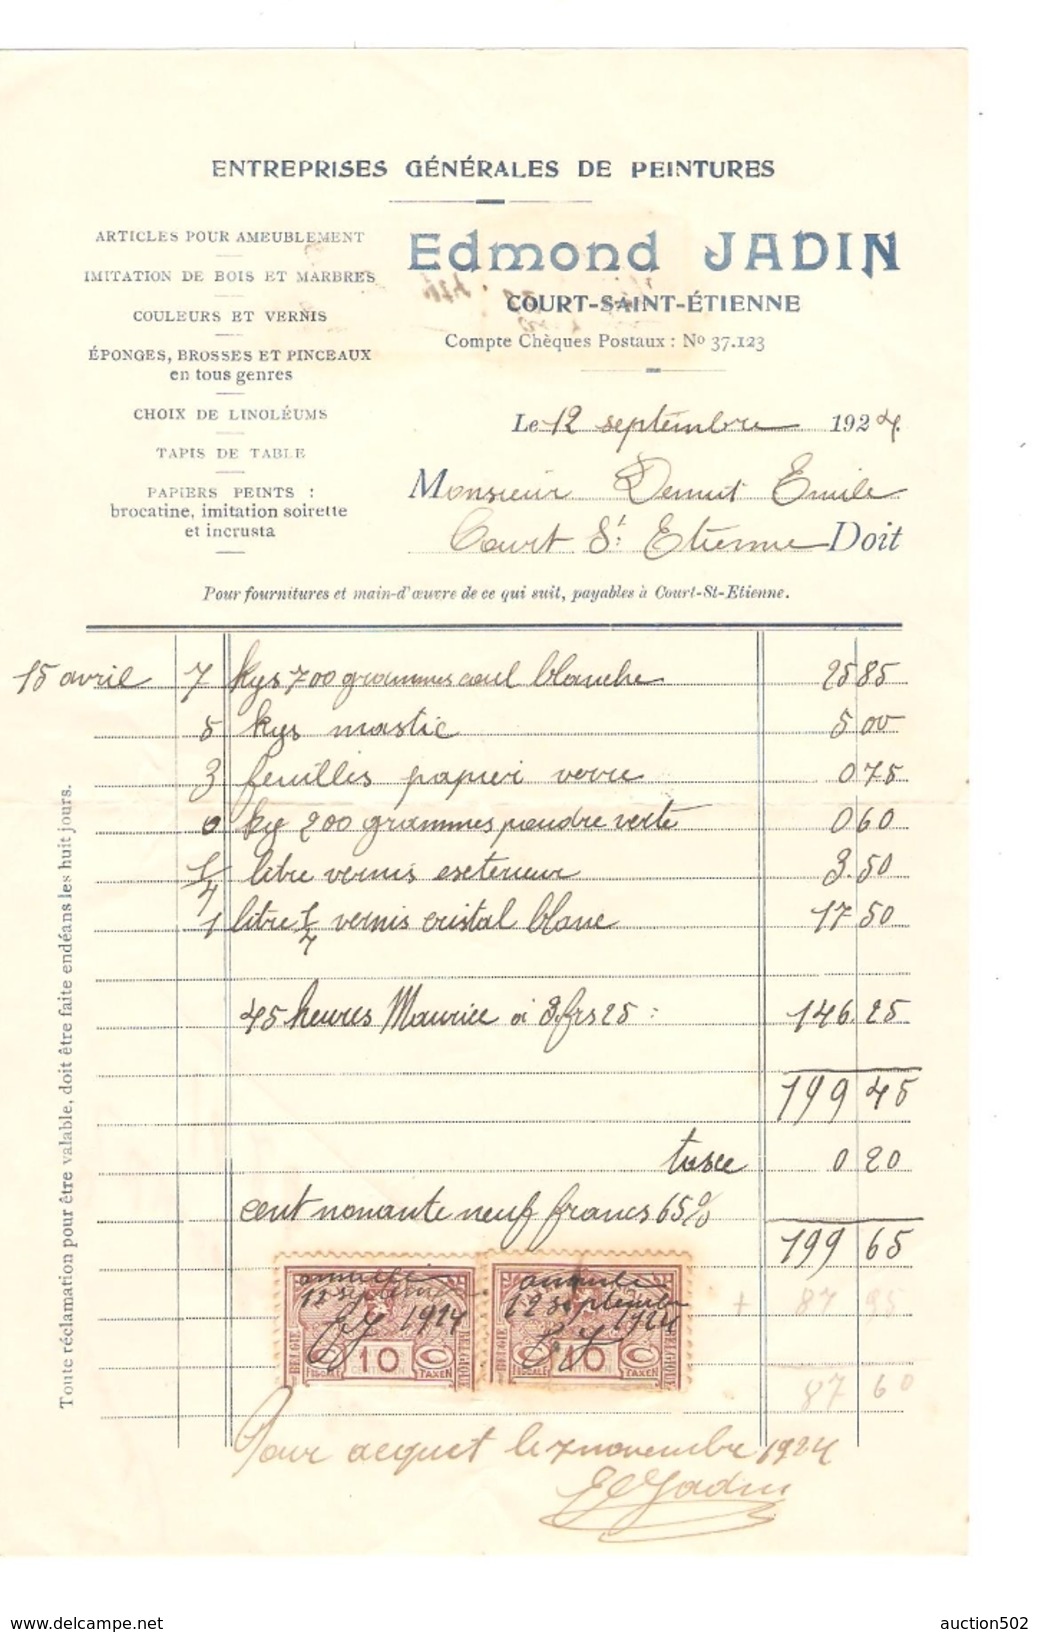 ENTREPRISES GÉNÉRALES DE PEINTURES
ARTICLES POUR AMEUBLEMENT
IMITATION DE BOIS ET MARBRES
COULEURS ET VERNIS
ÉPONGES, BROSSES ET PINCEAUX
en tous genres
CHOIX DE LINOLÉUMS
TAPIS DE TABLE
PAPIERS PEINTS :
brocatine, imitation soirette
et incrusta
Edmond JADIN
COURT-SAINT-ÉTIENNE
Compte Chèques Postaux : No 37.123
Le 12 septembre 1924.
Monsieur Demut Emile
Court St: Etienne Doit
Pour fournitures et main-d'œuvre de ce qui suit, payables à Court-St-Etienne.
15 avril 7 kgs 700 grammes coul blanche 25 85
5 kgs mastic 5 00
3 feuilles papier verre 0 75
0 kg 200 grammes poudre verte 0 60
1/4 litre vernis exterieur 3.50
1 litre 1/4 vernis cristal blanc 17 50
45 heures Maurice à 3.frs 25 : 146.25
199 45
taxe 0 20
cent nonante neuf francs 65 % 199 65
+ 87 95
87 60
annulé
12 septembre
1924
EJ
BELGIE BELGIQUE
10
CENTIMEN
FISCALE TAXEN
annulé
12 septembre
1924
E.J
BELGIE BELGIQUE
10
FISCALE TAXEN
Pour acquet le 7 novembre 1924
E Jadin
Toute réclamation pour être valable, doit être faite endéans les huit jours.
www.delcampe.net
auction502